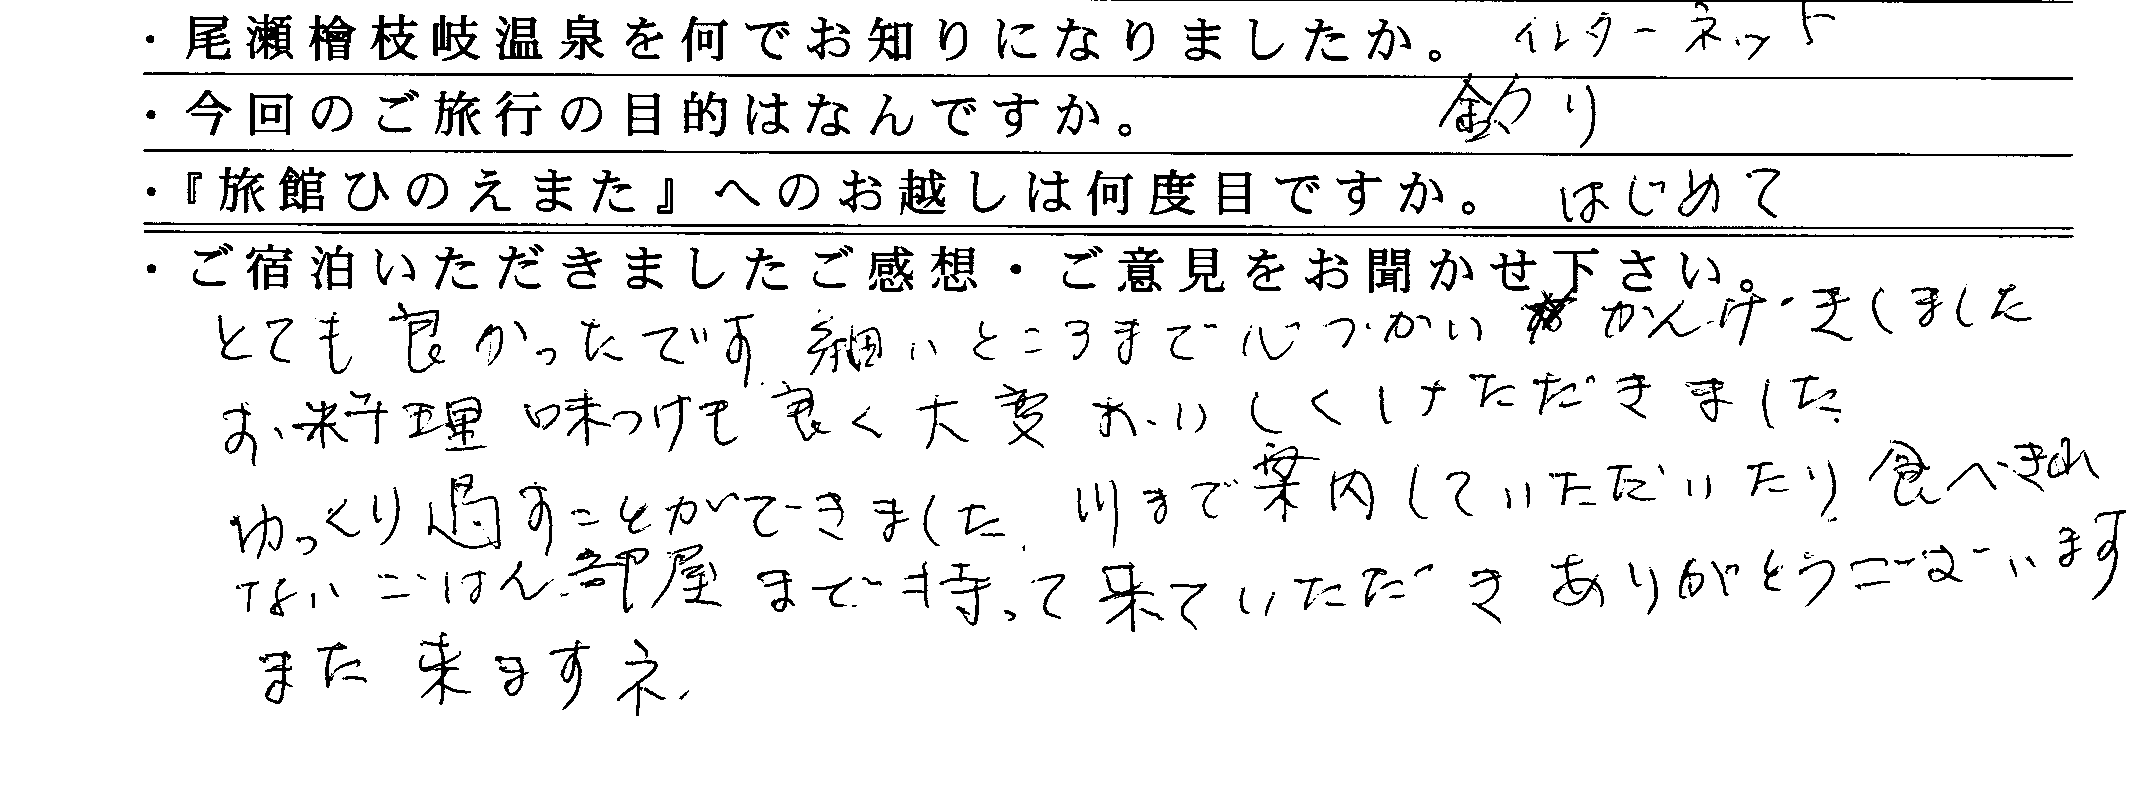 ・尾瀬檜枝岐温泉を何でお知りになりましたか。 インターネット
・今回のご旅行の目的はなんですか。 釣り
・『旅館ひのえまた』へのお越しは何度目ですか。 はじめて
・ご宿泊いただきましたご感想・ご意見をお聞かせ下さい。
とても良かったです 細いところまで心づかい かんげきしました
お料理 味つけも良く大変おいしくいただきました
ゆっくり過すことができました 川まで案内していただいたり 食べきれ
ないごはん部屋まで持って来ていただき ありがとうございます
また来ますネ